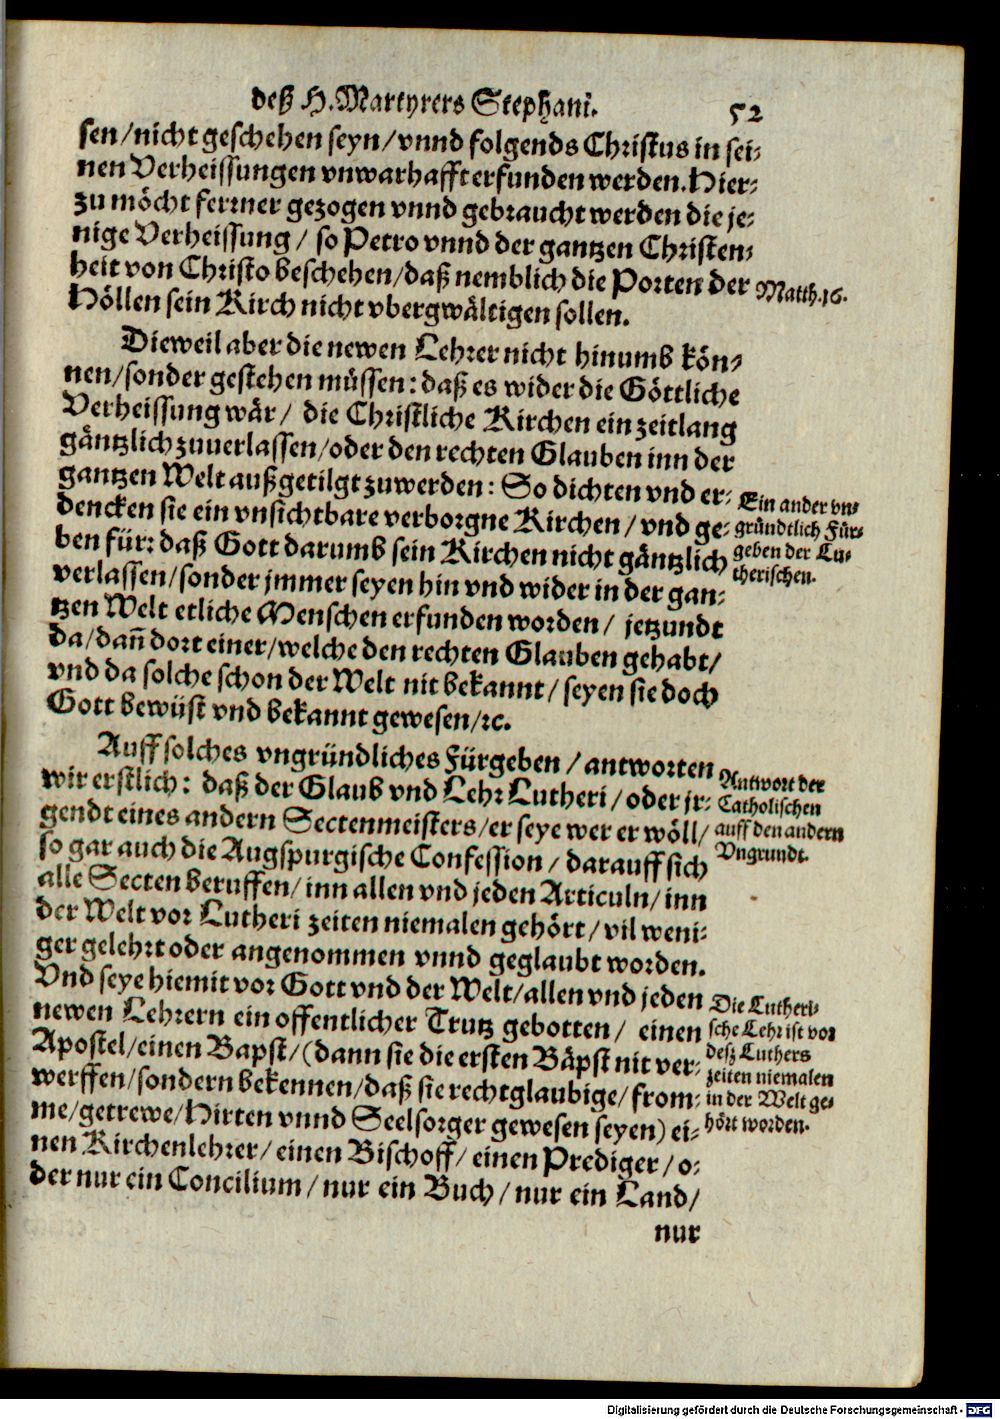 deß H. Martyrers Stephani. 52
sen/nicht geschehen seyn/vnnd folgends Christus in sei-
nen Verheissungen vnwarhafft erfunden werden. Hier-
zu möcht ferrner gezogen vnnd gebraucht werden die je-
nige Verheissung / so Petro vnnd der gantzen Christen-
heit von Christo beschehen/daß nemblich die Porten der
Höllen sein Kirch nicht vbergwältigen sollen.
Matth. 16.
Dieweil aber die newen Lehrer nicht hinumb kön-
nen/sonder gestehen müssen: daß es wider die Göttliche
Verheissung wär / die Christliche Kirchen ein zeitlang
gäntzlich zuuerlassen/oder den rechten Glauben inn der
gantzen Welt außgetilgt zuwerden: So dichten vnd er-
dencken sie ein vnsichtbare verborgne Kirchen / vnd ge-
ben für: daß Gott darumb sein Kirchen nicht gäntzlich
verlassen/sonder jmmer seyen hin vnd wider in der gan-
tzen Welt etliche Menschen erfunden worden / jetzundt
da/dañ dort einer/welche den rechten Glauben gehabt/
vnd da solche schon der Welt nit bekannt / seyen sie doch
Gott bewüst vnd bekannt gewesen/ꝛc.
Ein ander vn-
gründtlich Für-
geben der Lu-
therischen.
Auff solches vngründliches Fürgeben / antworten
wir erstlich: daß der Glaub vnd Lehr Lutheri / oder jr-
gendt eines andern Sectenmeisters/er seye wer er wöll/
so gar auch die Augspurgische Confession / darauff sich
alle Secten beruffen/ inn allen vnd jeden Articuln/ inn
der Welt vor Lutheri zeiten niemalen gehört / vil weni-
ger gelehrt oder angenommen vnnd geglaubt worden.
Vnd seye hiemit vor Gott vnd der Welt/allen vnd jeden
newen Lehrern ein offentlicher Trutz gebotten / einen
Apostel/einen Bapst/(dann sie die ersten Bäpst nit ver-
werffen/sondern bekennen/daß sie rechtglaubige/from-
me/getrewe/Hirten vnnd Seelsorger gewesen seyen) ei-
nen Kirchenlehrer/ einen Bischoff/ einen Prediger / o-
der nur ein Concilium / nur ein Buch / nur ein Land/
Antwort der
Catholischen
auff den andern
Vngrundt.
Die Lutheri-
sche Lehr ist vor
deß Luthers
zeiten niemalen
in der Welt ge-
hört worden.
nur
Digitalisierung gefördert durch die Deutsche Forschungsgemeinschaft - DFG